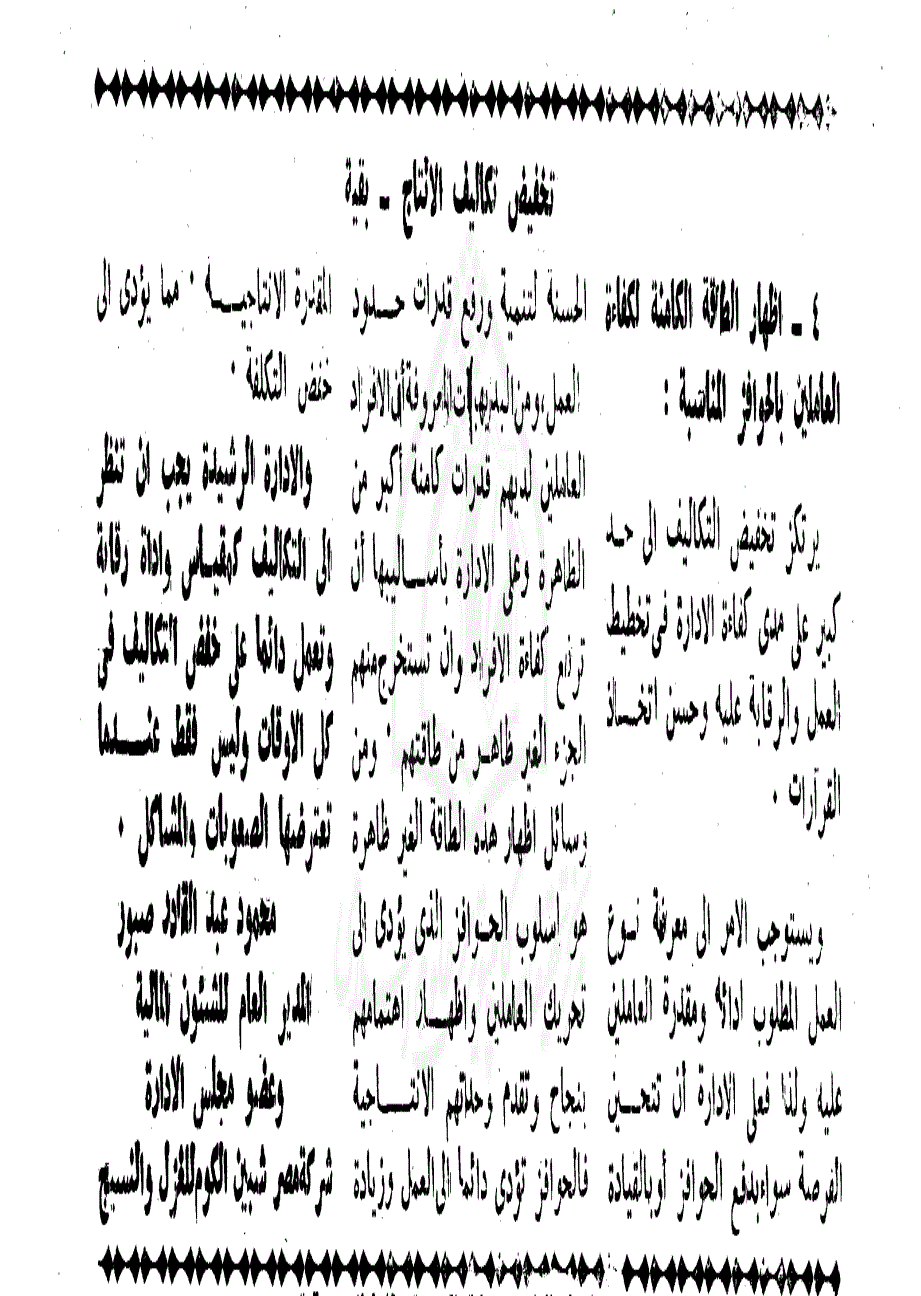 تخفيض تكاليف الانتاج ــ بقية
٤ ــ اظهار الطاقة الكامنة لكفاءة
العاملين بالحوافز المناسبة :
يرتكز تخفيض التكاليف الى حد
كبير على مدى كفاءة الادارة فى تخطيط
العمل والرقابة عليه وحسن اتخاذ
القرارات ٠
ويستوجب الامر الى معرفة نوع
العمل المطلوب اداؤه ومقدرة العاملين
عليه ولذا فعلى الادارة أن تتحين
الفرصة سواء بدفع الحوافز أو بالقيادة
الحسنة لتنمية ورفع قدرات حدود
العمل، ومن البديهيات المعروفة أن الافراد
العاملين لديهم قدرات كامنة أكبر من
الظاهرة وعلى الادارة بأساليبها أن
ترفع كفاءة الافراد وان تستخرج منهم
الجزء الغير ظاهر من طاقتهم ٠ ومن
وسائل اظهار هذه الطاقة الغير ظاهرة
هو اسلوب الحوافز الذى يؤدى الى
تحريك العاملين واظهار اهتمامهم
بنجاح وتقدم وحداتهم الانتاجية
فالحوافز تؤدى دائما الى العمل وزيادة
المقدرة الانتاجية ٠ مما يؤدى الى
خفض التكلفة ٠
والادارة الرشيدة يجب ان تنظر
الى التكاليف كمقياس واداة رقابة
وتعمل دائما على خفض التكاليف فى
كل الاوقات وليس فقط عندما
تعترضها الصعوبات والمشاكل ٠
محمود عبد القادر صبور
المدير العام للشئون المالية
وعضو مجلس الادارة
شركة مصر شبين الكوم للغزل والنسيج